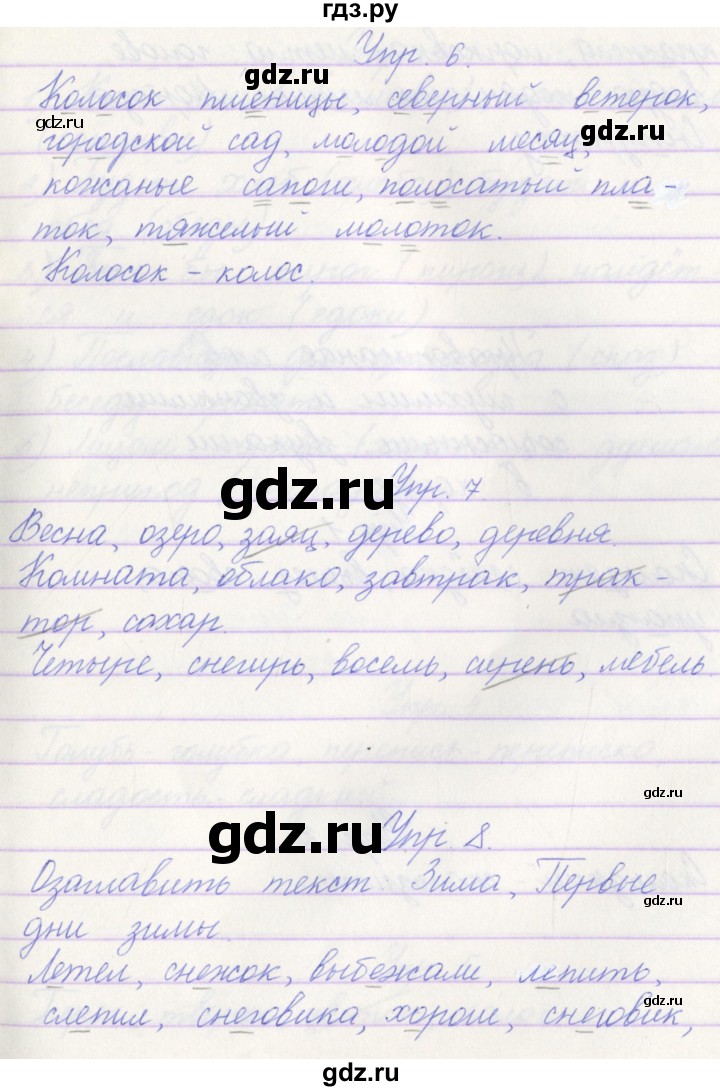 гдз.ру
Упр. 6.
gdz.ru
Колосок пшеницы, северный ветерок,
gdz.ru
gdz.ru
городской сад, молодой месяц,
кожаные сапоги, полосатый пла-
ток, тяжелый молоток.
Колосок - колос.
gdz.ru
Упр. 7
Весна, озеро, заяц, дерево, деревня.
Комната, облако, завтрак, трак-
тор, сахар.
Четыре, снегирь, восемь, сирень, мебель.
gdz.ru
gdz.ru
Упр. 8.
Озаглавить текст Зима, Первые
gdz.ru
дни зимы.
Летел, снежок, выбежали, лепить,
gdz.ru
слепил, снеговика, хорош, снеговик,
gdz.ru